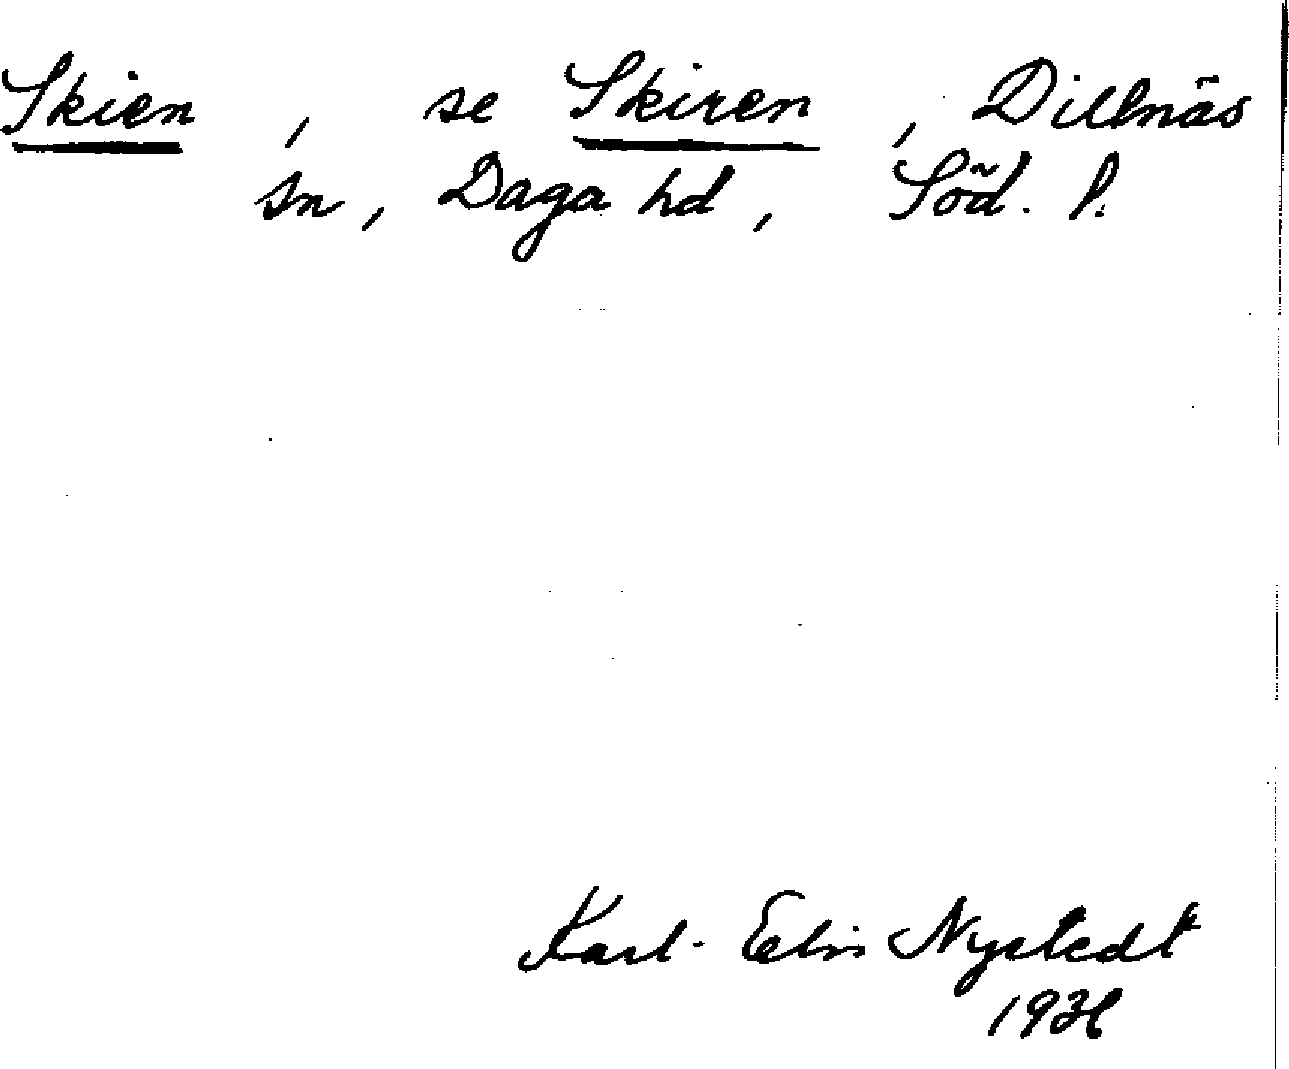 Skien, se Skiren, Dillnäs
sn, Daga hd, Söd. l.
Karl-Elis Nystedt